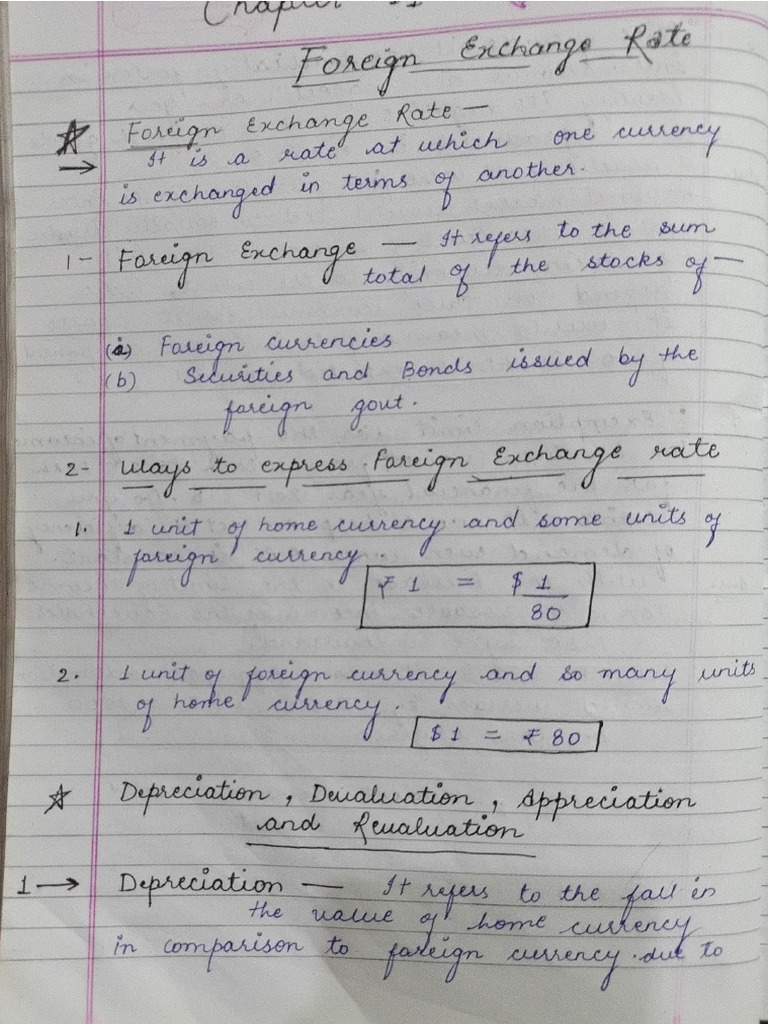 Chapter
Foreign Exchange Rate
☆ Foreign Exchange Rate —
→ It is a rate at which one currency
is exchanged in terms of another.
1- Foreign Exchange — It refers to the sum
total of the stocks of —
(a) Foreign currencies
(b) Securities and Bonds issued by the
foreign govt.
2- Ways to express Foreign Exchange rate
1. 1 unit of home currency and some units of
foreign currency.
₹ 1 = $ 1/80
2. 1 unit of foreign currency and so many units
of home currency.
$ 1 = ₹ 80
☆ Depreciation, Devaluation, Appreciation
and Revaluation
1 → Depreciation — It refers to the fall in
the value of home currency
in comparison to foreign currency due to